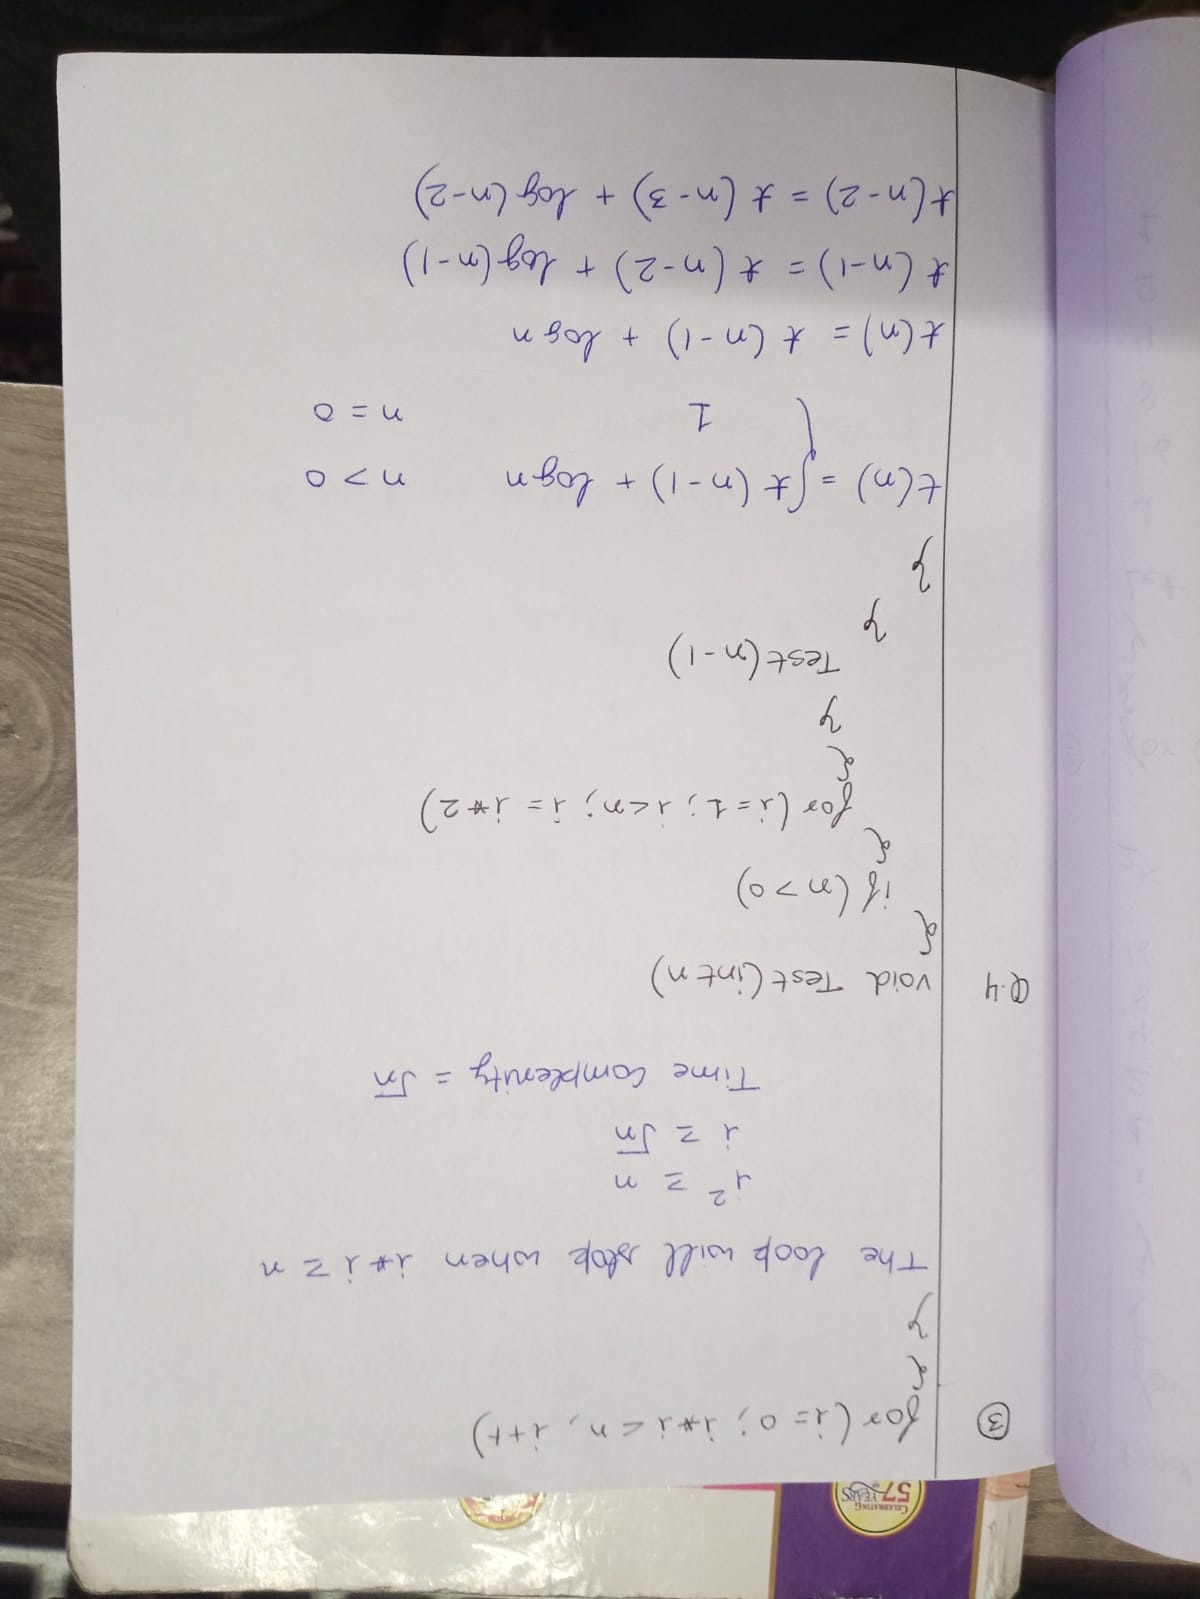 CELEBRATING
57 YEARS
③ for (i = 0; i*i < n, i++)
{
}
The loop will stop when i*i ≥ n
i² ≥ n
i ≥ √n
Time Complenity = √n
Q.4 void Test(int n)
{
if (n > 0)
{
for (i = 1; i < n; i = i*2)
{
}
Test(n-1)
}
}
t(n) = { t(n-1) + log n n > 0
1 n = 0
t(n) = t(n-1) + log n
t(n-1) = t(n-2) + log(n-1)
t(n-2) = t(n-3) + log(n-2)